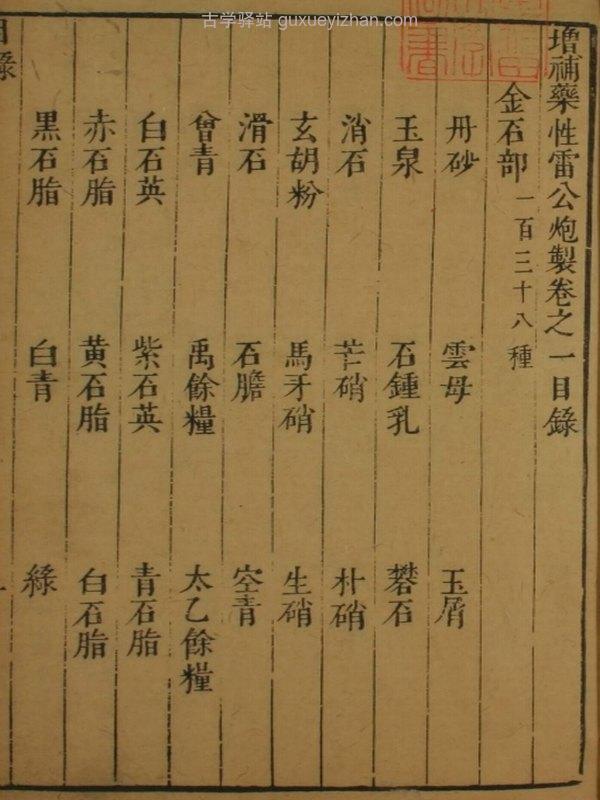 古学驿站 guxueyizhan.com
增補藥性雷公炮製卷之一目錄
金石部 一百三十八種
丹砂 雲母 玉屑
玉泉 石鍾乳 礬石
消石 芒硝 朴硝
玄胡粉 馬牙硝 生硝
滑石 石膽 空青
曾青 禹餘糧 太乙餘糧
白石英 紫石英 青石脂
赤石脂 黃石脂 白石脂
黑石脂 白青 綠
目錄